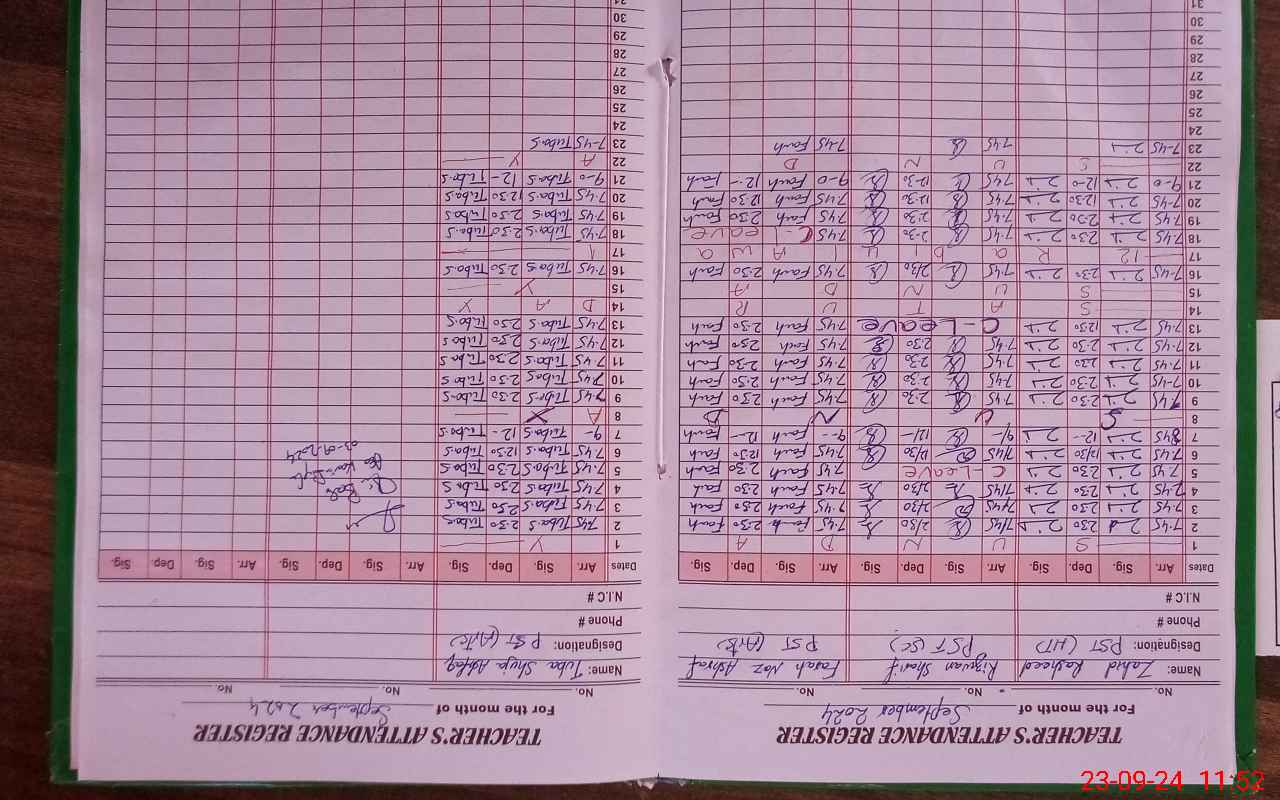 TEACHER'S ATTENDANCE REGISTER
For the month of September 2024
No. No. No.
Name: Zahid Rasheed Rizwan Sharif Farah Naz Ashraf
Designation: PST (HT) PST (SC) PST (Arts)
Phone #
N.I.C #
Dates Arr. Sig. Dep. Sig. Arr. Sig. Dep. Sig. Arr. Sig. Dep. Sig.
1 S U N D A
2 7-45 2-30 7/45 2/30 7-45 Farah 2-30 Farah
3 7-45 2-30 7/45 2/30 7-45 Farah 2-30 Farah
4 7-45 2-30 7/45 2/30 7-45 Farah 2-30
5 7-45 2-30 C-Leave 7-45 Farah 2-30 Farah
6 7-45 12/30 7/45 12/30 7-45 Farah 12-30 Farah
7 8-45 12- 9/- 12/- 9-- Farah 12- Farah
8 S U N D
9 7-45 2-30 7-45 2-30 7-45 Farah 2-30 Farah
10 7-45 2-30 7-45 2-30 7-45 Farah 2-30 Farah
11 7-45 2-30 7-45 2-30 7-45 Farah 2-30 Farah
12 7-45 2-30 7-45 2-30 7-45 Farah 2-30 Farah
13 7-45 12-30 C-Leave 7-45 Farah 2-30 Farah
14 S A T U R
15 S U N D A
16 7-45 2-30 7-45 2/30 7-45 Farah 2-30 Farah
17 12 R a b i u l A w a
18 7-45 2-30 7-45 2-30 7-45 C-Leave
19 7-45 2-30 7-45 2-30 7-45 Farah 2-30 Farah
20 7-45 12-30 7-45 12-30 7-45 Farah 12-30 Farah
21 9-0 12-0 7-45 12-30 9-0 Farah 12- Farah
22 S U N D
23 7-45 7-45 7-45 Farah
24
25
26
27
28
29
30
31
TEACHER'S ATTENDANCE REGISTER
For the month of September 2024
No. No.
Name: Tuba Shuja Ashfaq
Designation: PST (Arts)
Phone #
N.I.C #
Dates Arr. Sig. Dep. Sig. Arr. Sig. Dep. Sig. Arr. Sig. Dep. Sig.
1 Y
2 7-45 Tuba-S 2-30 Tuba-S
3 7-45 Tuba-S 2-30 Tuba-S
4 7-45 Tuba-S 2-30 Tuba-S
5 7-45 Tuba-S 2-30 Tuba-S
6 7-45 Tuba-S 12-30 Tuba-S
03-09-2024
7 9- Tuba-S 12- Tuba-S
8 A Y
9 7-45 Tuba-S 2-30 Tuba-S
10 7-45 Tuba-S 2-30 Tuba-S
11 7-45 Tuba-S 2-30 Tuba-S
12 7-45 Tuba-S 2-30 Tuba-S
13 7-45 Tuba-S 2-30 Tuba-S
14 D A Y
15 Y
16 7-45 Tuba-S 2-30 Tuba-S
17 l
18 7-45 Tuba-S 2-30 Tuba-S
19 7-45 Tuba-S 2-30 Tuba-S
20 7-45 Tuba-S 12-30 Tuba-S
21 9-0 Tuba-S 12- Tuba-S
22 A Y
23 7-45 Tuba-S
24
25
26
27
28
29
30
31
23-09-24 11:52